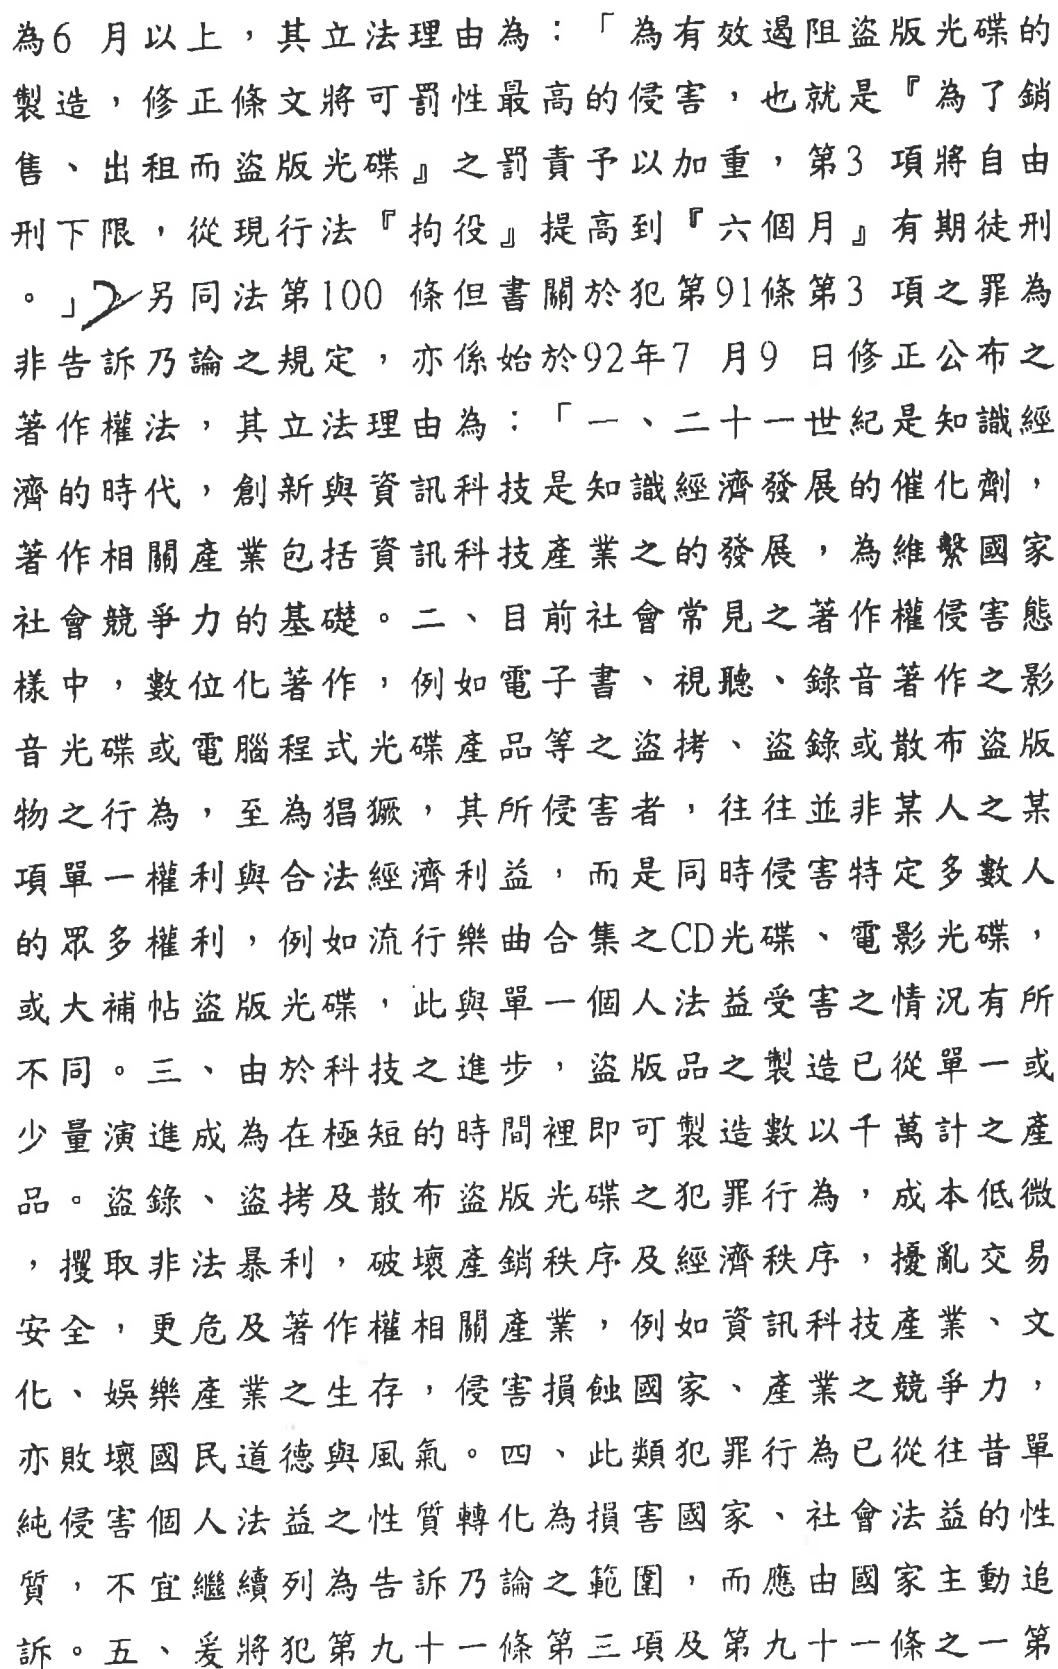 為6 月以上，其立法理由為：「為有效遏阻盜版光碟的
製造，修正條文將可罰性最高的侵害，也就是『為了銷
售、出租而盜版光碟』之罰責予以加重，第3 項將自由
刑下限，從現行法『拘役』提高到『六個月』有期徒刑
。」另同法第100 條但書關於犯第91條第3 項之罪為
非告訴乃論之規定，亦係始於92年7 月9 日修正公布之
著作權法，其立法理由為：「一、二十一世紀是知識經
濟的時代，創新與資訊科技是知識經濟發展的催化劑，
著作相關產業包括資訊科技產業之的發展，為維繫國家
社會競爭力的基礎。二、目前社會常見之著作權侵害態
樣中，數位化著作，例如電子書、視聽、錄音著作之影
音光碟或電腦程式光碟產品等之盜拷、盜錄或散布盜版
物之行為，至為猖獗，其所侵害者，往往並非某人之某
項單一權利與合法經濟利益，而是同時侵害特定多數人
的眾多權利，例如流行樂曲合集之CD光碟、電影光碟，
或大補帖盜版光碟，此與單一個人法益受害之情況有所
不同。三、由於科技之進步，盜版品之製造已從單一或
少量演進成為在極短的時間裡即可製造數以千萬計之產
品。盜錄、盜拷及散布盜版光碟之犯罪行為，成本低微
，攫取非法暴利，破壞產銷秩序及經濟秩序，擾亂交易
安全，更危及著作權相關產業，例如資訊科技產業、文
化、娛樂產業之生存，侵害損蝕國家、產業之競爭力，
亦敗壞國民道德與風氣。四、此類犯罪行為已從往昔單
純侵害個人法益之性質轉化為損害國家、社會法益的性
質，不宜繼續列為告訴乃論之範圍，而應由國家主動追
訴。五、爰將犯第九十一條第三項及第九十一條之一第